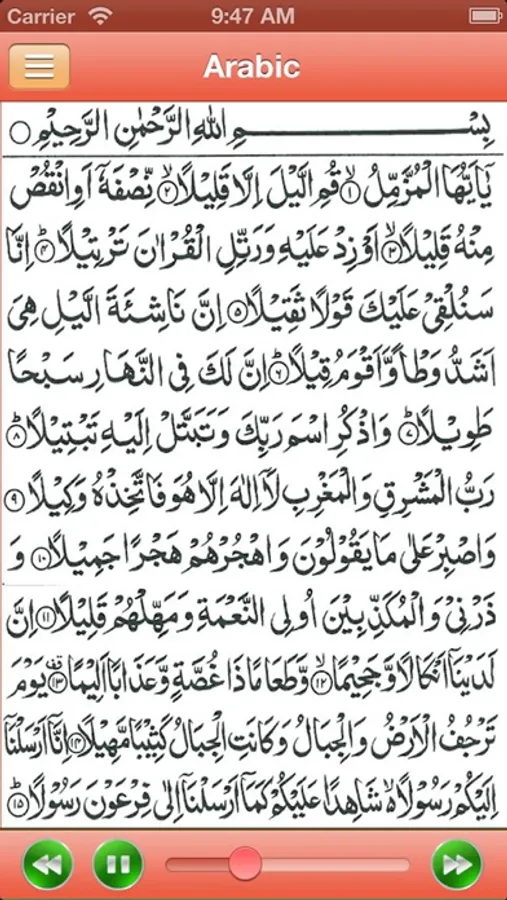 Carrier 9:47 AM
Arabic
بِسْمِ اللهِ الرَّحْمٰنِ الرَّحِيْمِ ○
يٰۤاَيُّهَا الْمُزَّمِّلُ ۙ﴿۱﴾ قُمِ الَّيْلَ اِلَّا قَلِيْلًا ۙ﴿۲﴾ نِّصْفَهٗۤ اَوِ انْقُصْ
مِنْهُ قَلِيْلًا ۙ﴿۳﴾ اَوْ زِدْ عَلَيْهِ وَرَتِّلِ الْقُرْاٰنَ تَرْتِيْلًا ؕ﴿۴﴾ اِنَّا
سَنُلْقِيْ عَلَيْكَ قَوْلًا ثَقِيْلًا ﴿۵﴾ اِنَّ نَاشِئَةَ الَّيْلِ هِيَ
اَشَدُّ وَطْاً وَّاَقْوَمُ قِيْلًا ؕ﴿۶﴾ اِنَّ لَكَ فِي النَّهَارِ سَبْحًا
طَوِيْلًا ؕ﴿۷﴾ وَاذْكُرِ اسْمَ رَبِّكَ وَتَبَتَّلْ اِلَيْهِ تَبْتِيْلًا ؕ﴿۸﴾
رَبُّ الْمَشْرِقِ وَالْمَغْرِبِ لَاۤ اِلٰهَ اِلَّا هُوَ فَاتَّخِذْهُ وَكِيْلًا ﴿۹﴾
وَاصْبِرْ عَلٰى مَا يَقُوْلُوْنَ وَاهْجُرْهُمْ هَجْرًا جَمِيْلًا ﴿۱۰﴾ وَ
ذَرْنِيْ وَالْمُكَذِّبِيْنَ اُولِي النَّعْمَةِ وَمَهِّلْهُمْ قَلِيْلًا ﴿۱۱﴾ اِنَّ
لَدَيْنَاۤ اَنْكَالًا وَّجَحِيْمًا ۙ﴿۱۲﴾ وَّطَعَامًا ذَا غُصَّةٍ وَّعَذَابًا اَلِيْمًا ﴿۱۳﴾ يَوْمَ
تَرْجُفُ الْاَرْضُ وَالْجِبَالُ وَكَانَتِ الْجِبَالُ كَثِيْبًا مَّهِيْلًا ﴿۱۴﴾ اِنَّاۤ اَرْسَلْنَاۤ
اِلَيْكُمْ رَسُوْلًا ۙ شَاهِدًا عَلَيْكُمْ كَمَاۤ اَرْسَلْنَاۤ اِلٰى فِرْعَوْنَ رَسُوْلًا ؕ﴿۱۵﴾